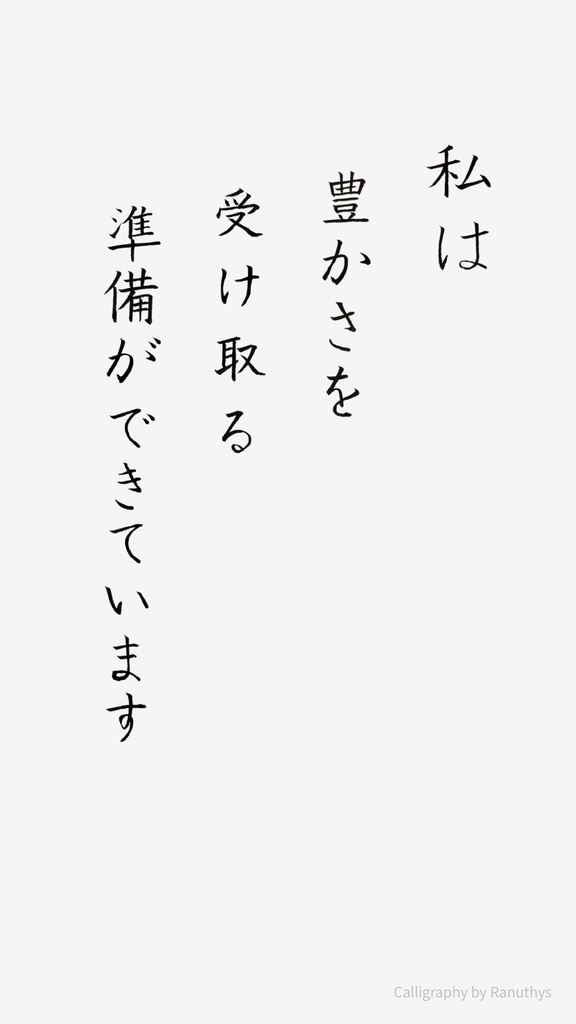 私は
豊かさを
受け取る
準備ができています
Calligraphy by Ranuthys